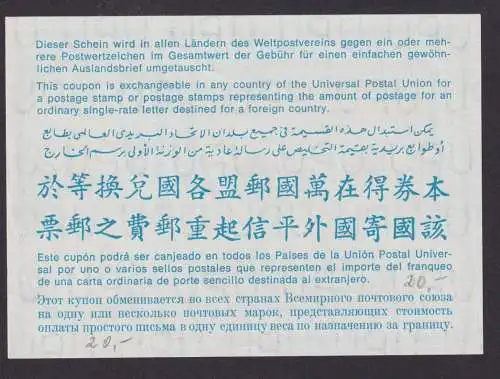 Dieser Schein wird in allen Ländern des Weltpostvereins gegen ein oder meh-
rere Postwertzeichen im Gesamtwert der Gebühr für einen einfachen gewöhn-
lichen Auslandsbrief umgetauscht.
This coupon is exchangeable in any country of the Universal Postal Union for
a postage stamp or postage stamps representing the amount of postage for an
ordinary single-rate letter destined for a foreign country.
يمكن استبدال هذه القسيمة فى جميع بلدان الاتحاد البريدى العالمى بطابع
أو طوابع بريدية بقيمة التخليص على رسالة عادية من الوزنة الأولى برسم الخارج
於等換兌國各盟郵國萬在得券本
票郵之費郵重起信平外國寄國該
Este cupón podrá ser canjeado en todos los Países de la Unión Postal Univer-
sal por uno o varios sellos postales que representen el importe del franqueo
de una carta ordinaria de porte sencillo destinada al extranjero.
20,-
Этот купон обменивается во всех странах Всемирного почтового союза
на одну или несколько почтовых марок, представляющих стоимость
оплаты простого письма в одну единицу веса по назначению за границу.
20,-